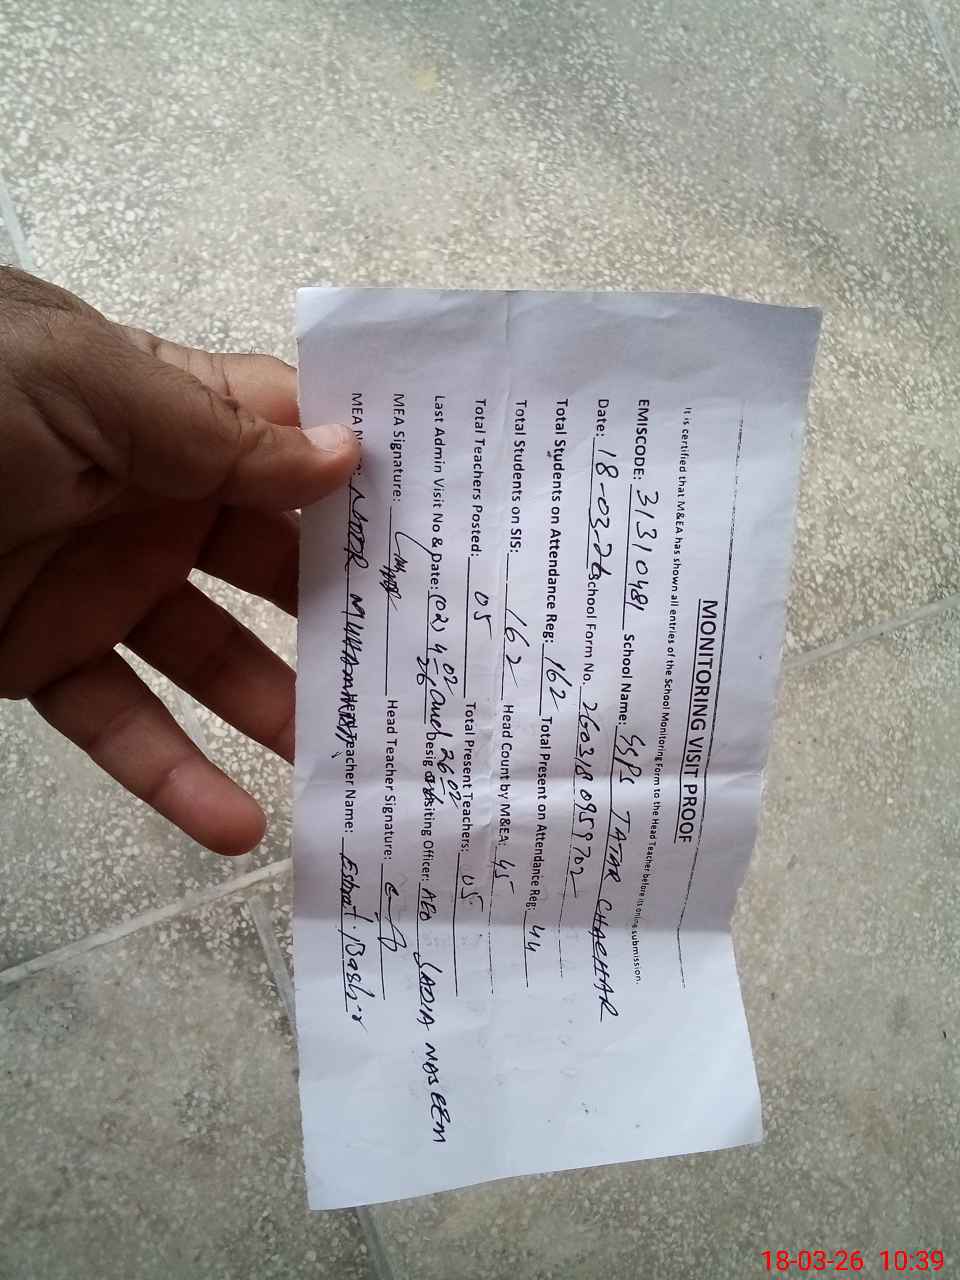 MONITORING VISIT PROOF
It is certified that M&EA has shown all entries of the School Monitoring Form to the Head Teacher before its online submission.
EMISCODE: 31310481 School Name: GGPS TATAR CHACHAR
Date: 18-03-26 School Form No. 2603180959702
Total Students on Attendance Reg: 162 Total Present on Attendance Reg: 44
Total Students on SIS: 162 Head Count by M&EA: 45
Total Teachers Posted: 05 Total Present Teachers: 05
Last Admin Visit No & Date: (02) 4-02-26 and 26-02 Desig Visiting Officer: AEO SADIA NASEEM
MEA Signature: Head Teacher Signature:
MEA NOOR MUHAMMAD Head Teacher Name: Bashir
18-03-26 10:39